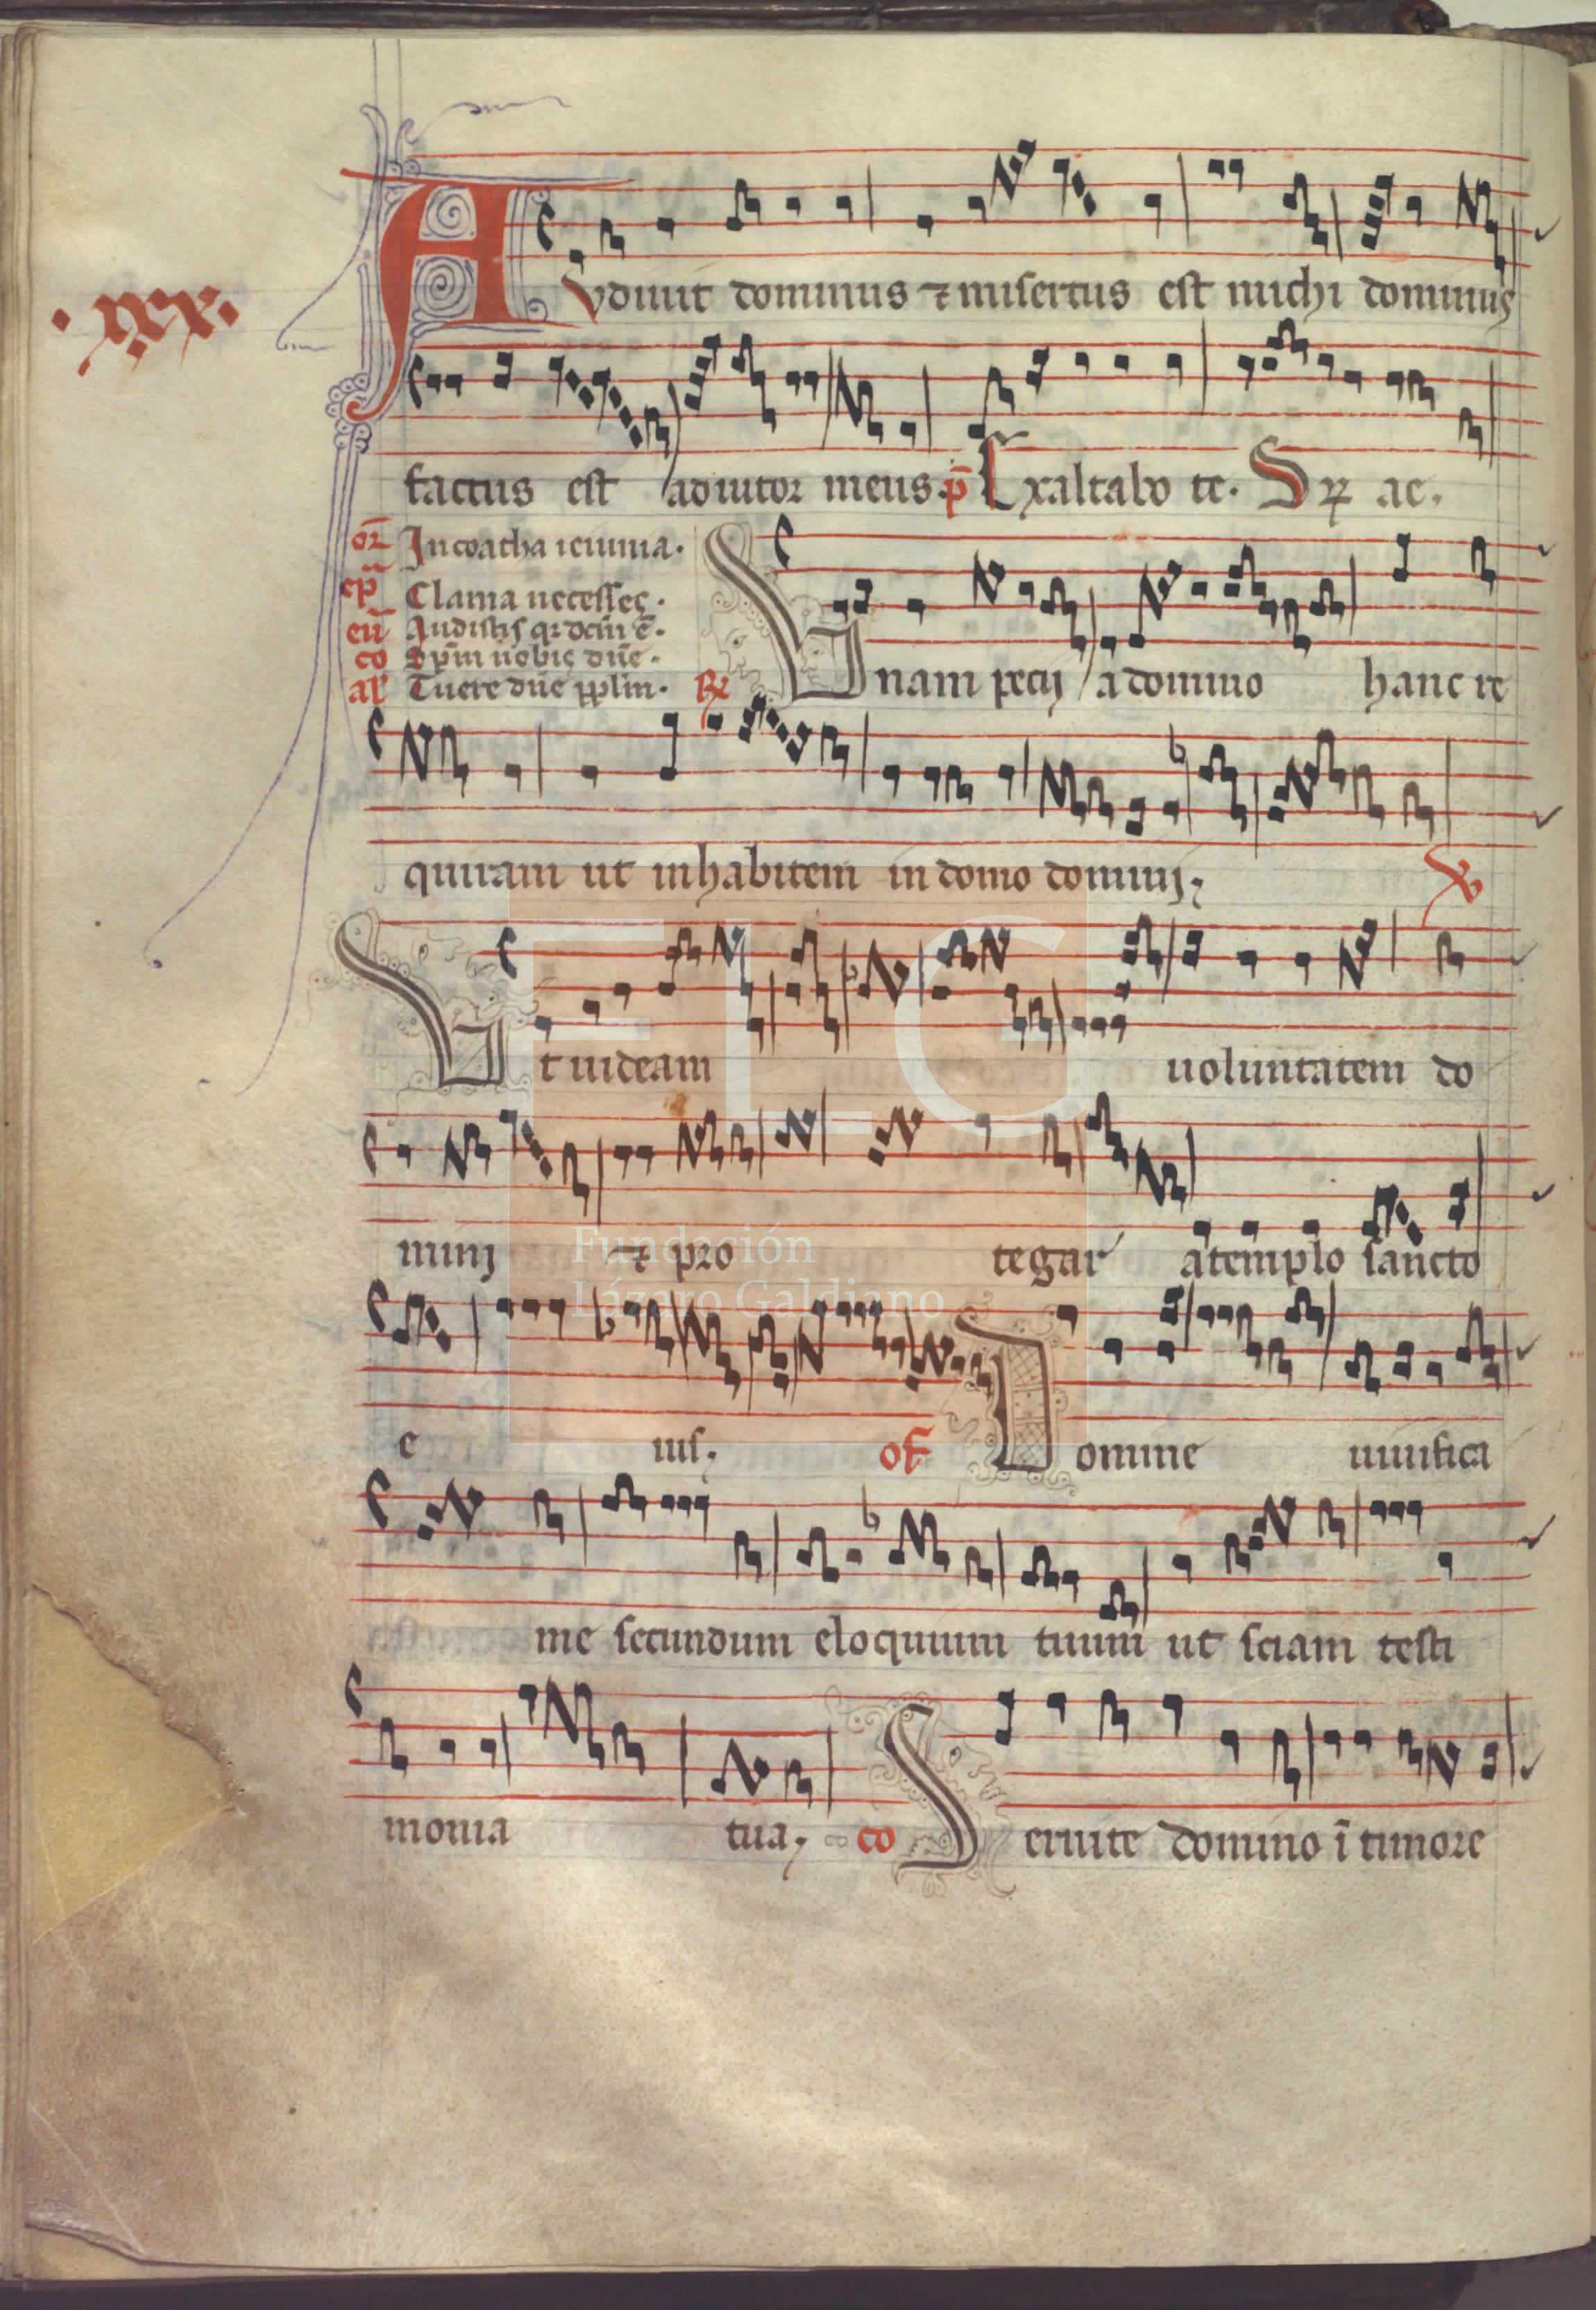 ·xxix·
Avdiuit dominus ⁊ misertus est michi dominus
factus est adiutor meus. p̄ Exaltabo te. Ꝟ ae.
or̄ Incoatha ieiunia.
ep̄ Clama ne cesses.
eū Audistis q̄ dc̄m ē.
co Sp̄m nobis dn̄e.
al' Tuere dn̄e pplm. ℟ Vnam pecij a domino hanc re
quiram ut inhabitem in domo dominj. ℣
Vt uideam uoluntatem do
minj ⁊ pro tegar a templo sancto
e ius. of Domine uiuifica
me secundum eloquium tuum ut sciam testi
monia tua. co Seruite domino ī timore
FLG
Fundación
Lázaro Galdiano